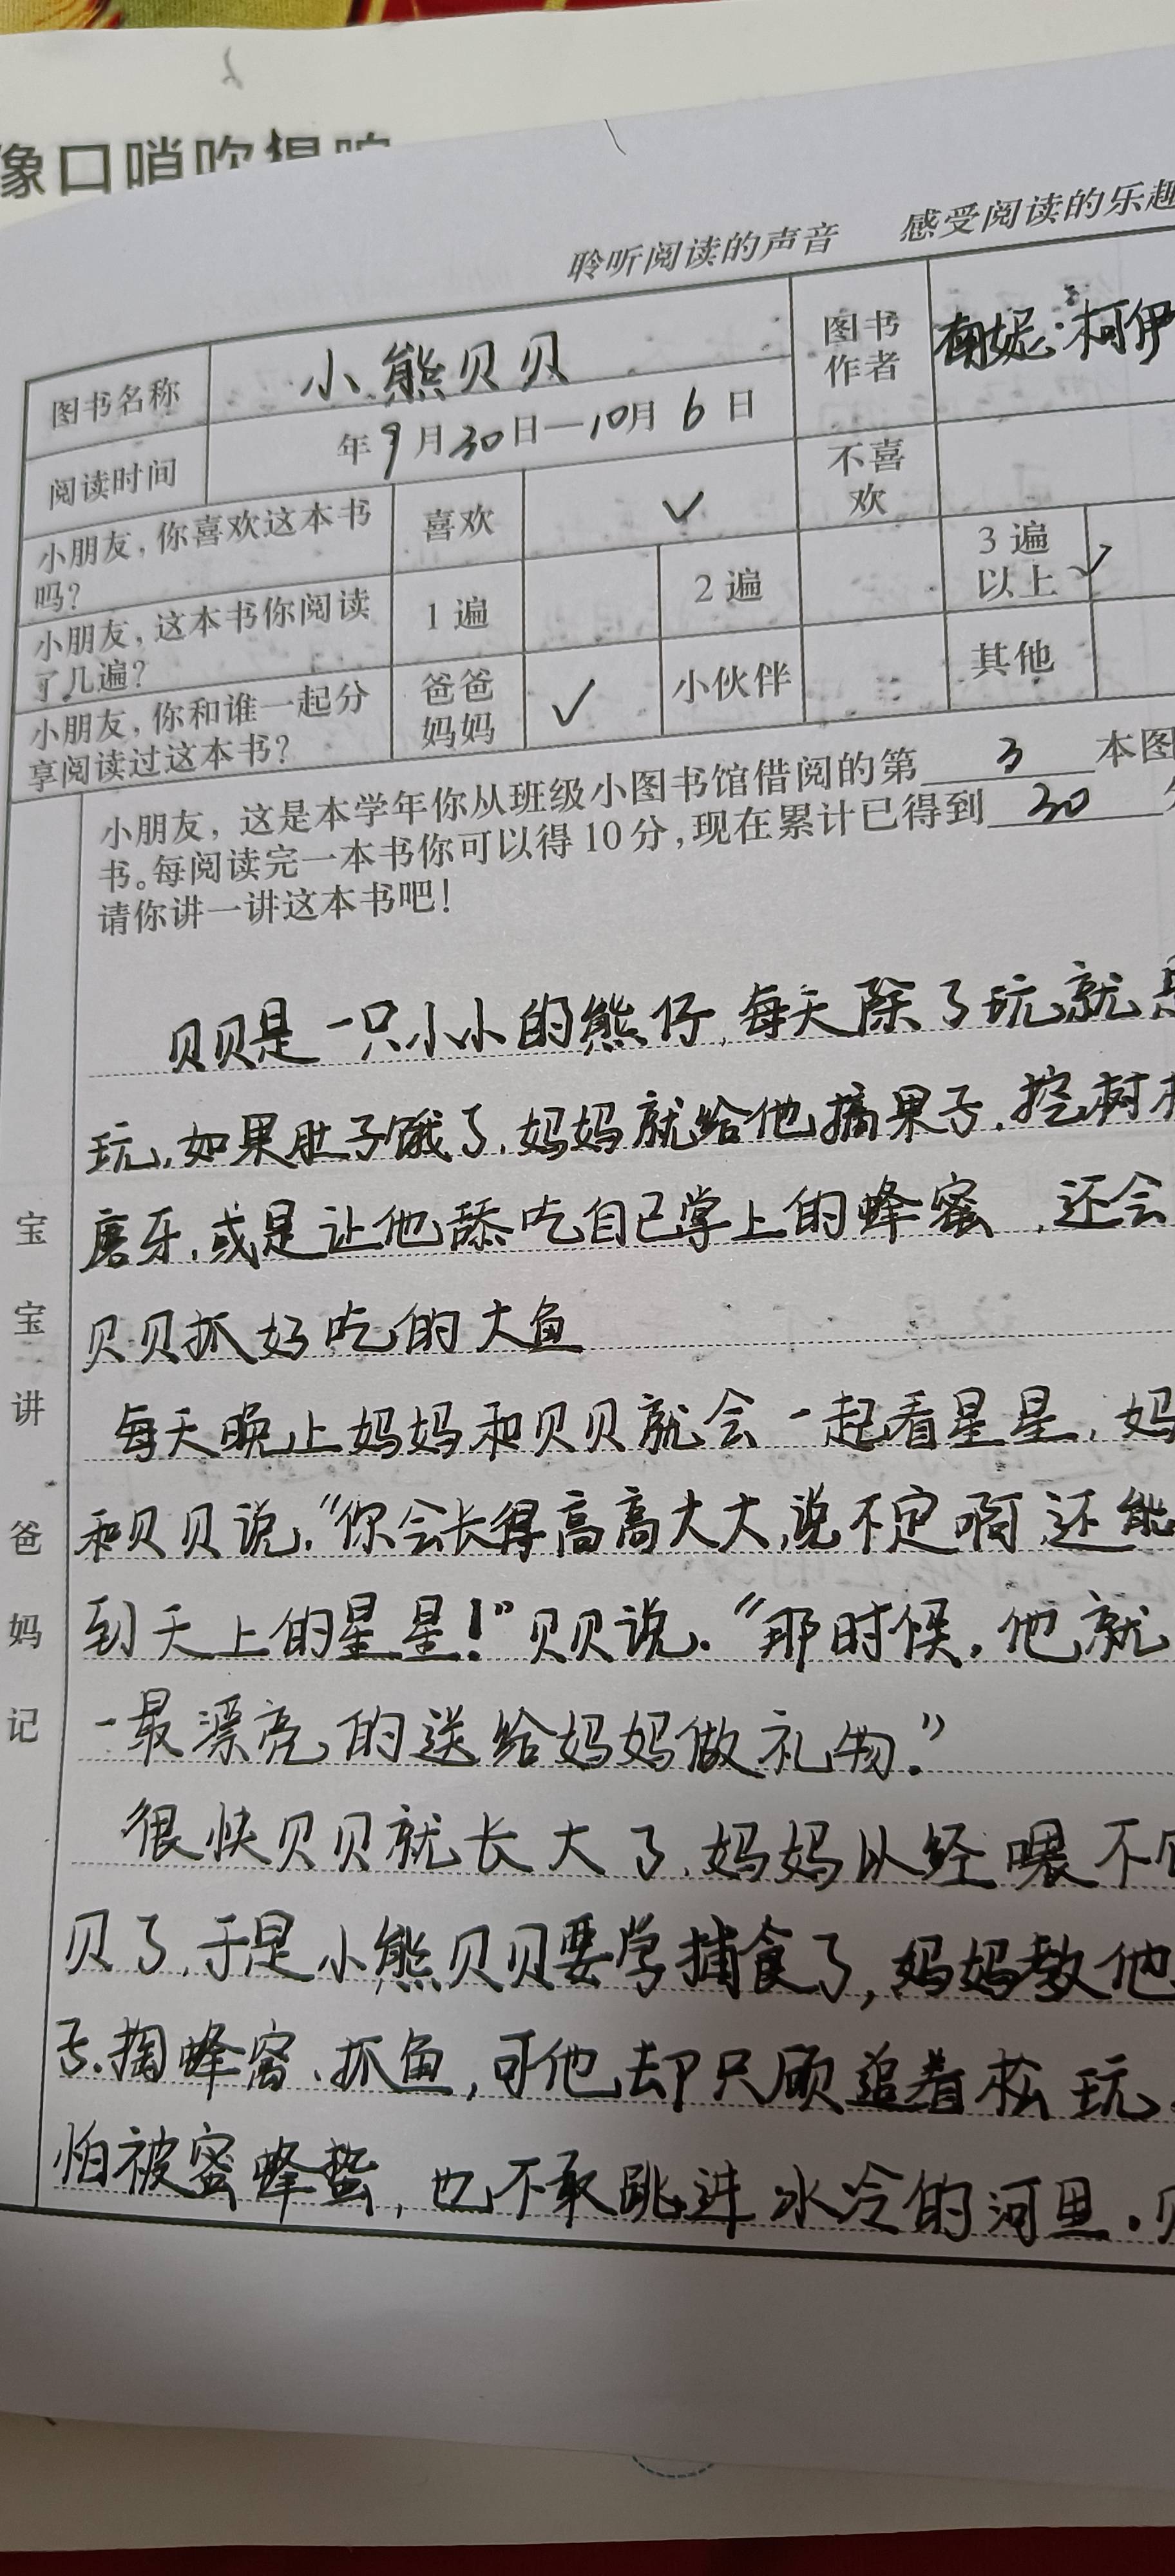 像口哨吹得响
聆听阅读的声音 感受阅读的乐趣
图书名称 小熊贝贝 图书作者 妮·柯伊
阅读时间 年9月30日—10月6日
小朋友,你喜欢这本书吗? 喜欢 ✓ 不喜欢
小朋友,这本书你阅读了几遍? 1遍 2遍 3遍以上 ✓
小朋友,你和谁一起分享阅读过这本书? 爸爸妈妈 ✓ 小伙伴 其他
小朋友,这是本学年你从班级小图书馆借阅的第 3 本图
书。每阅读完一本书你可以得10分,现在累计已得到 30
请你讲一讲这本书吧!
宝宝讲 爸妈记
贝贝是一只小小的熊仔,每天除了玩就是
玩,如果肚子饿了,妈妈就给他摘果子.挖树
磨牙,或是让他舔吃自己掌上的蜂蜜,还会
贝贝抓好吃的大鱼
每天晚上妈妈和贝贝就会一起看星星,妈
和贝贝说,“你会长得高高大大,说不定啊还能
到天上的星星!”贝贝说.“那时候,他就
一最漂亮的送给妈妈做礼物.”
很快贝贝就长大了,妈妈以经喂不
贝了,于是小熊贝贝要学捕食了,妈妈教他
子、掏蜂窝、抓鱼,可他却只顾追着松玩
怕被蜜蜂蜇,也不敢跳进冰冷的河里.